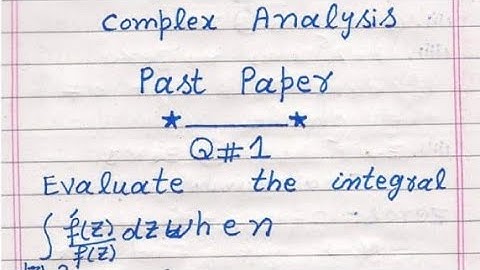 Complex Analysis
Past Paper
Q#1
Evaluate the integral
∫ f́(z)/f(z) dz when